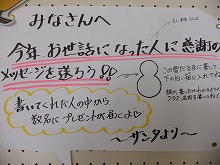 みなさんへ
今年お世話になった人に感謝の
メッセージを送ろう!!
この雪だるまに書いて
書いてくれた人の中から
数名にプレゼントが届くよ♡
〜サンタより〜